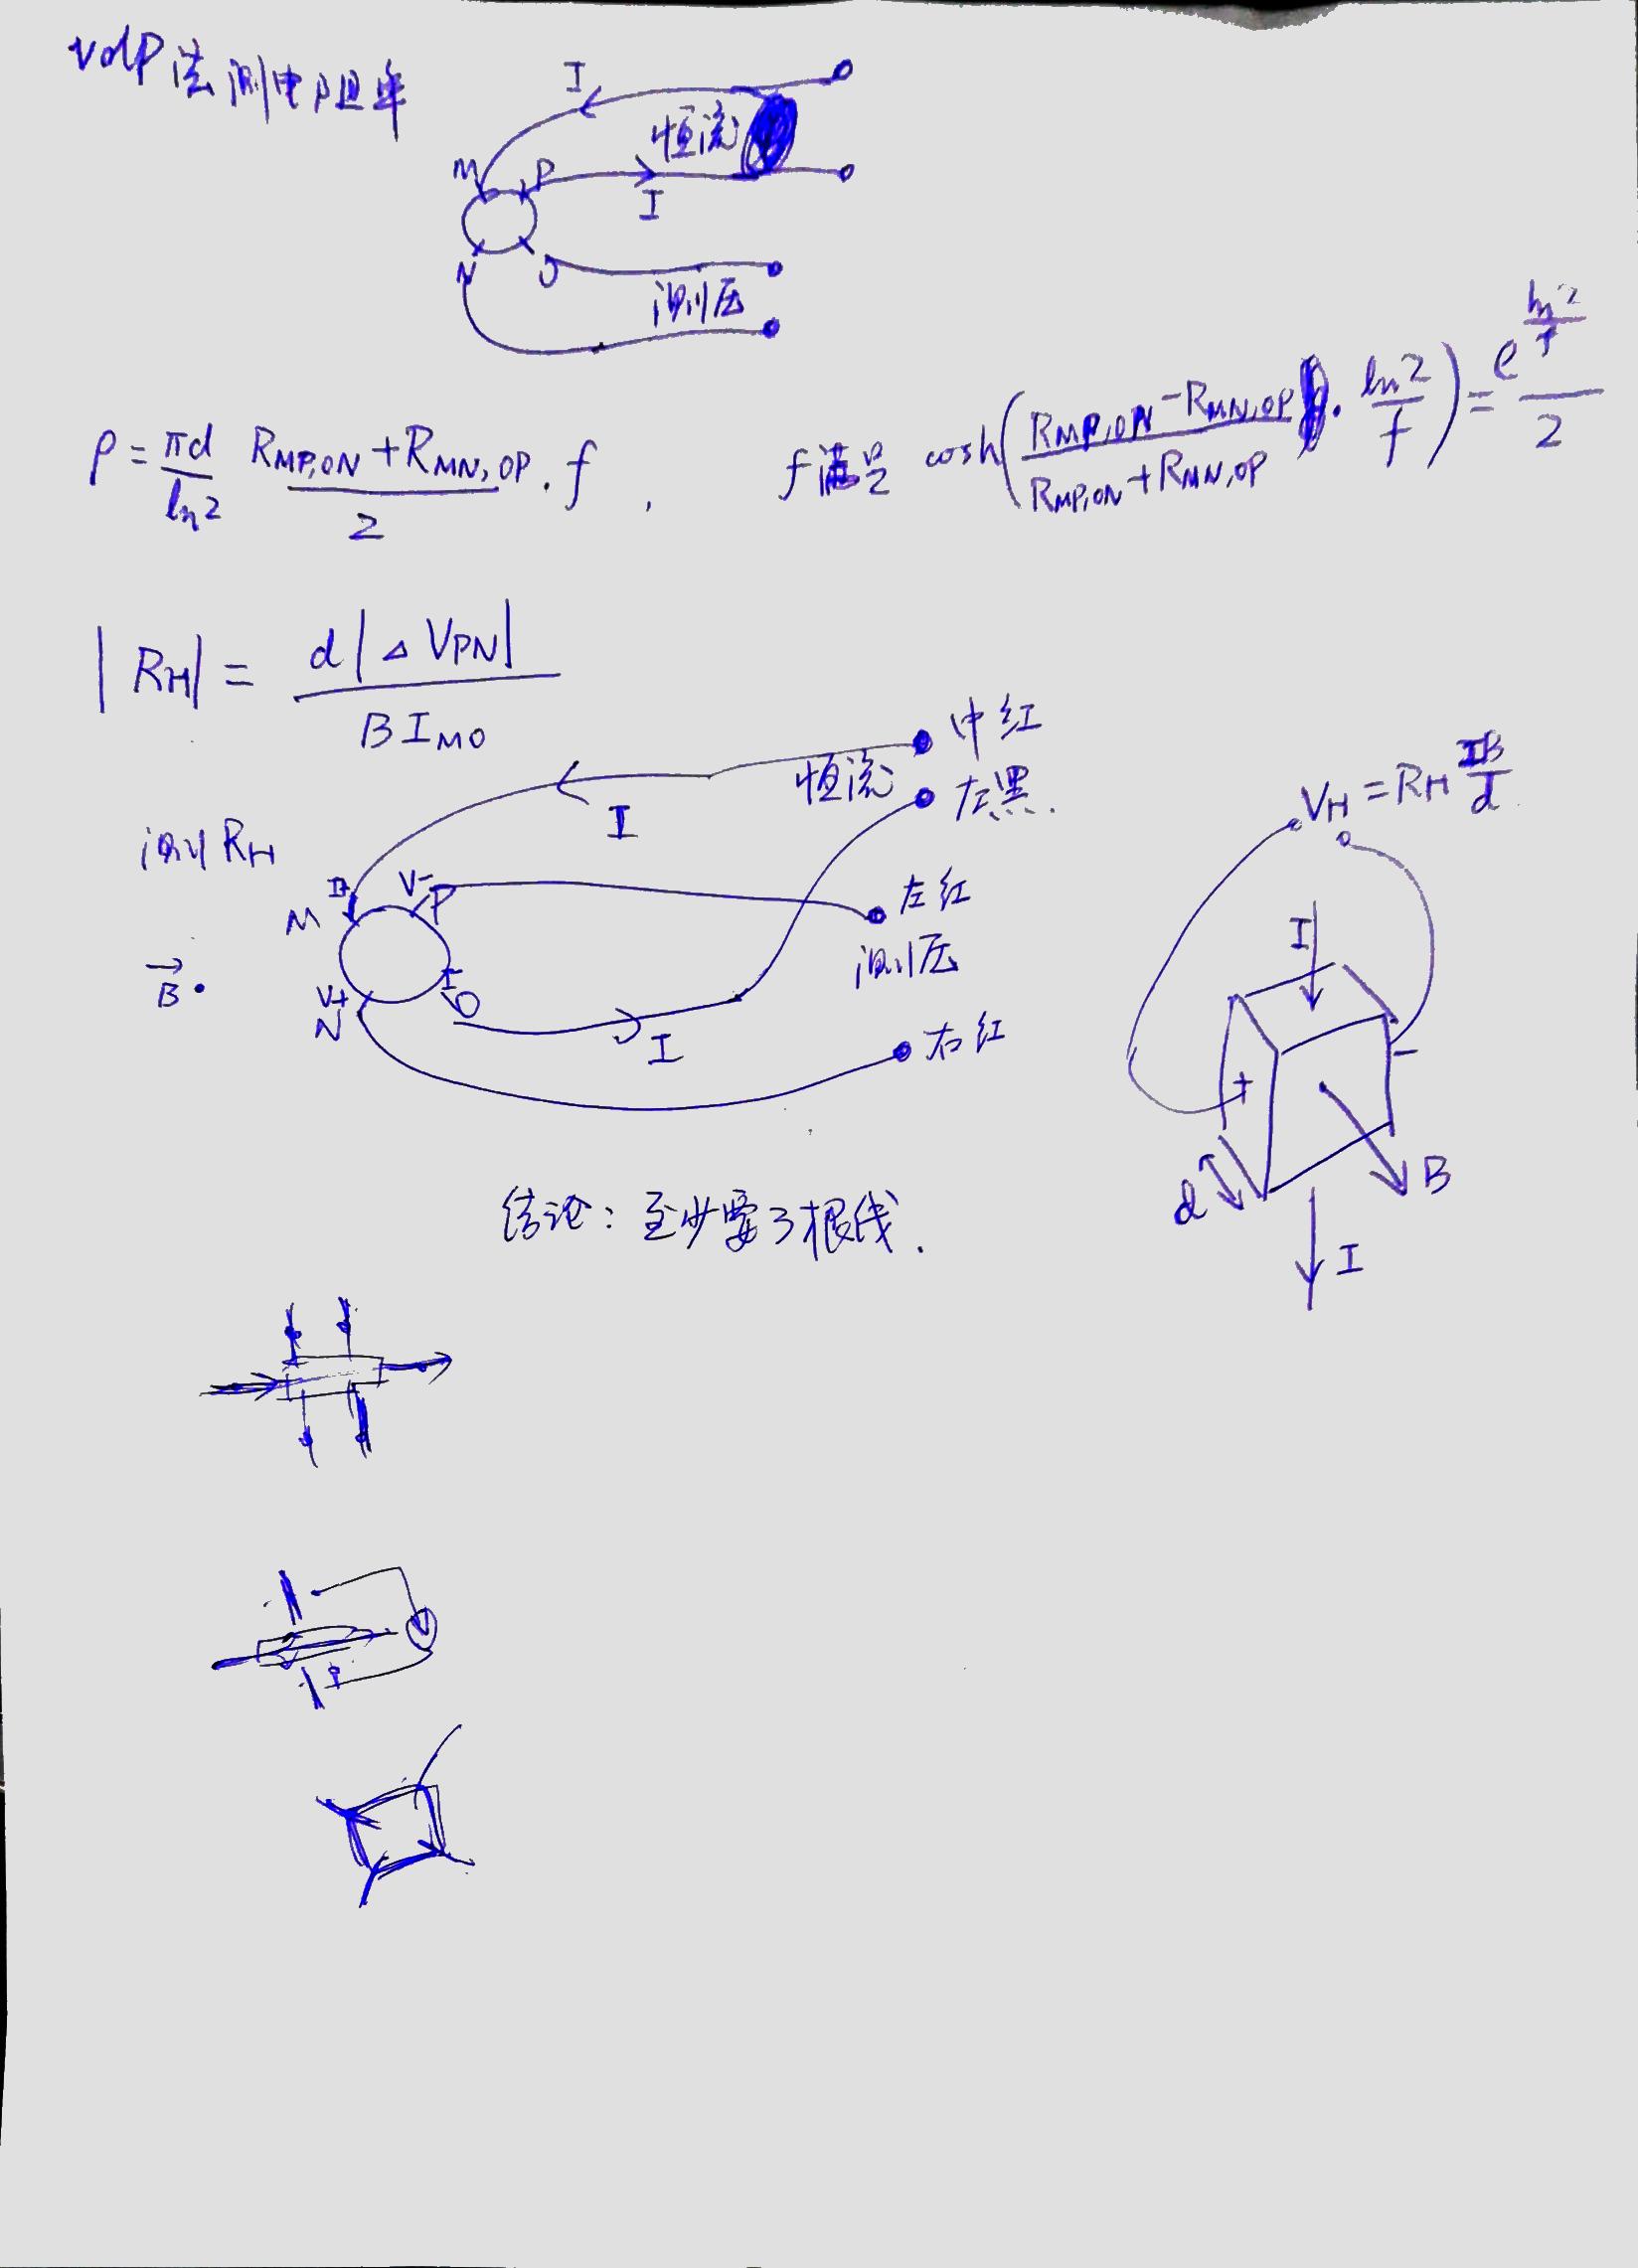 vdP法测电阻率
I
恒流
M P
I
N O
测压
ρ = \frac{πd}{ln2} \frac{R_{MP,ON} + R_{MN,OP}}{2} · f , f满足 cosh(\frac{R_{MP,ON} - R_{MN,OP}}{R_{MP,ON} + R_{MN,OP}} · \frac{ln2}{f}) = \frac{e^{\frac{ln2}{f}}}{2}
|R_H| = \frac{d|ΔV_{PN}|}{BI_{MO}}
中红
恒流
左黑.
I
V_H = R_H \frac{IB}{d}
测R_H
M V- P
左红
测压
\vec{B} ·
I
V+
N O
I
右红
I
+ -
d B
I
结论: 至少要3根线.